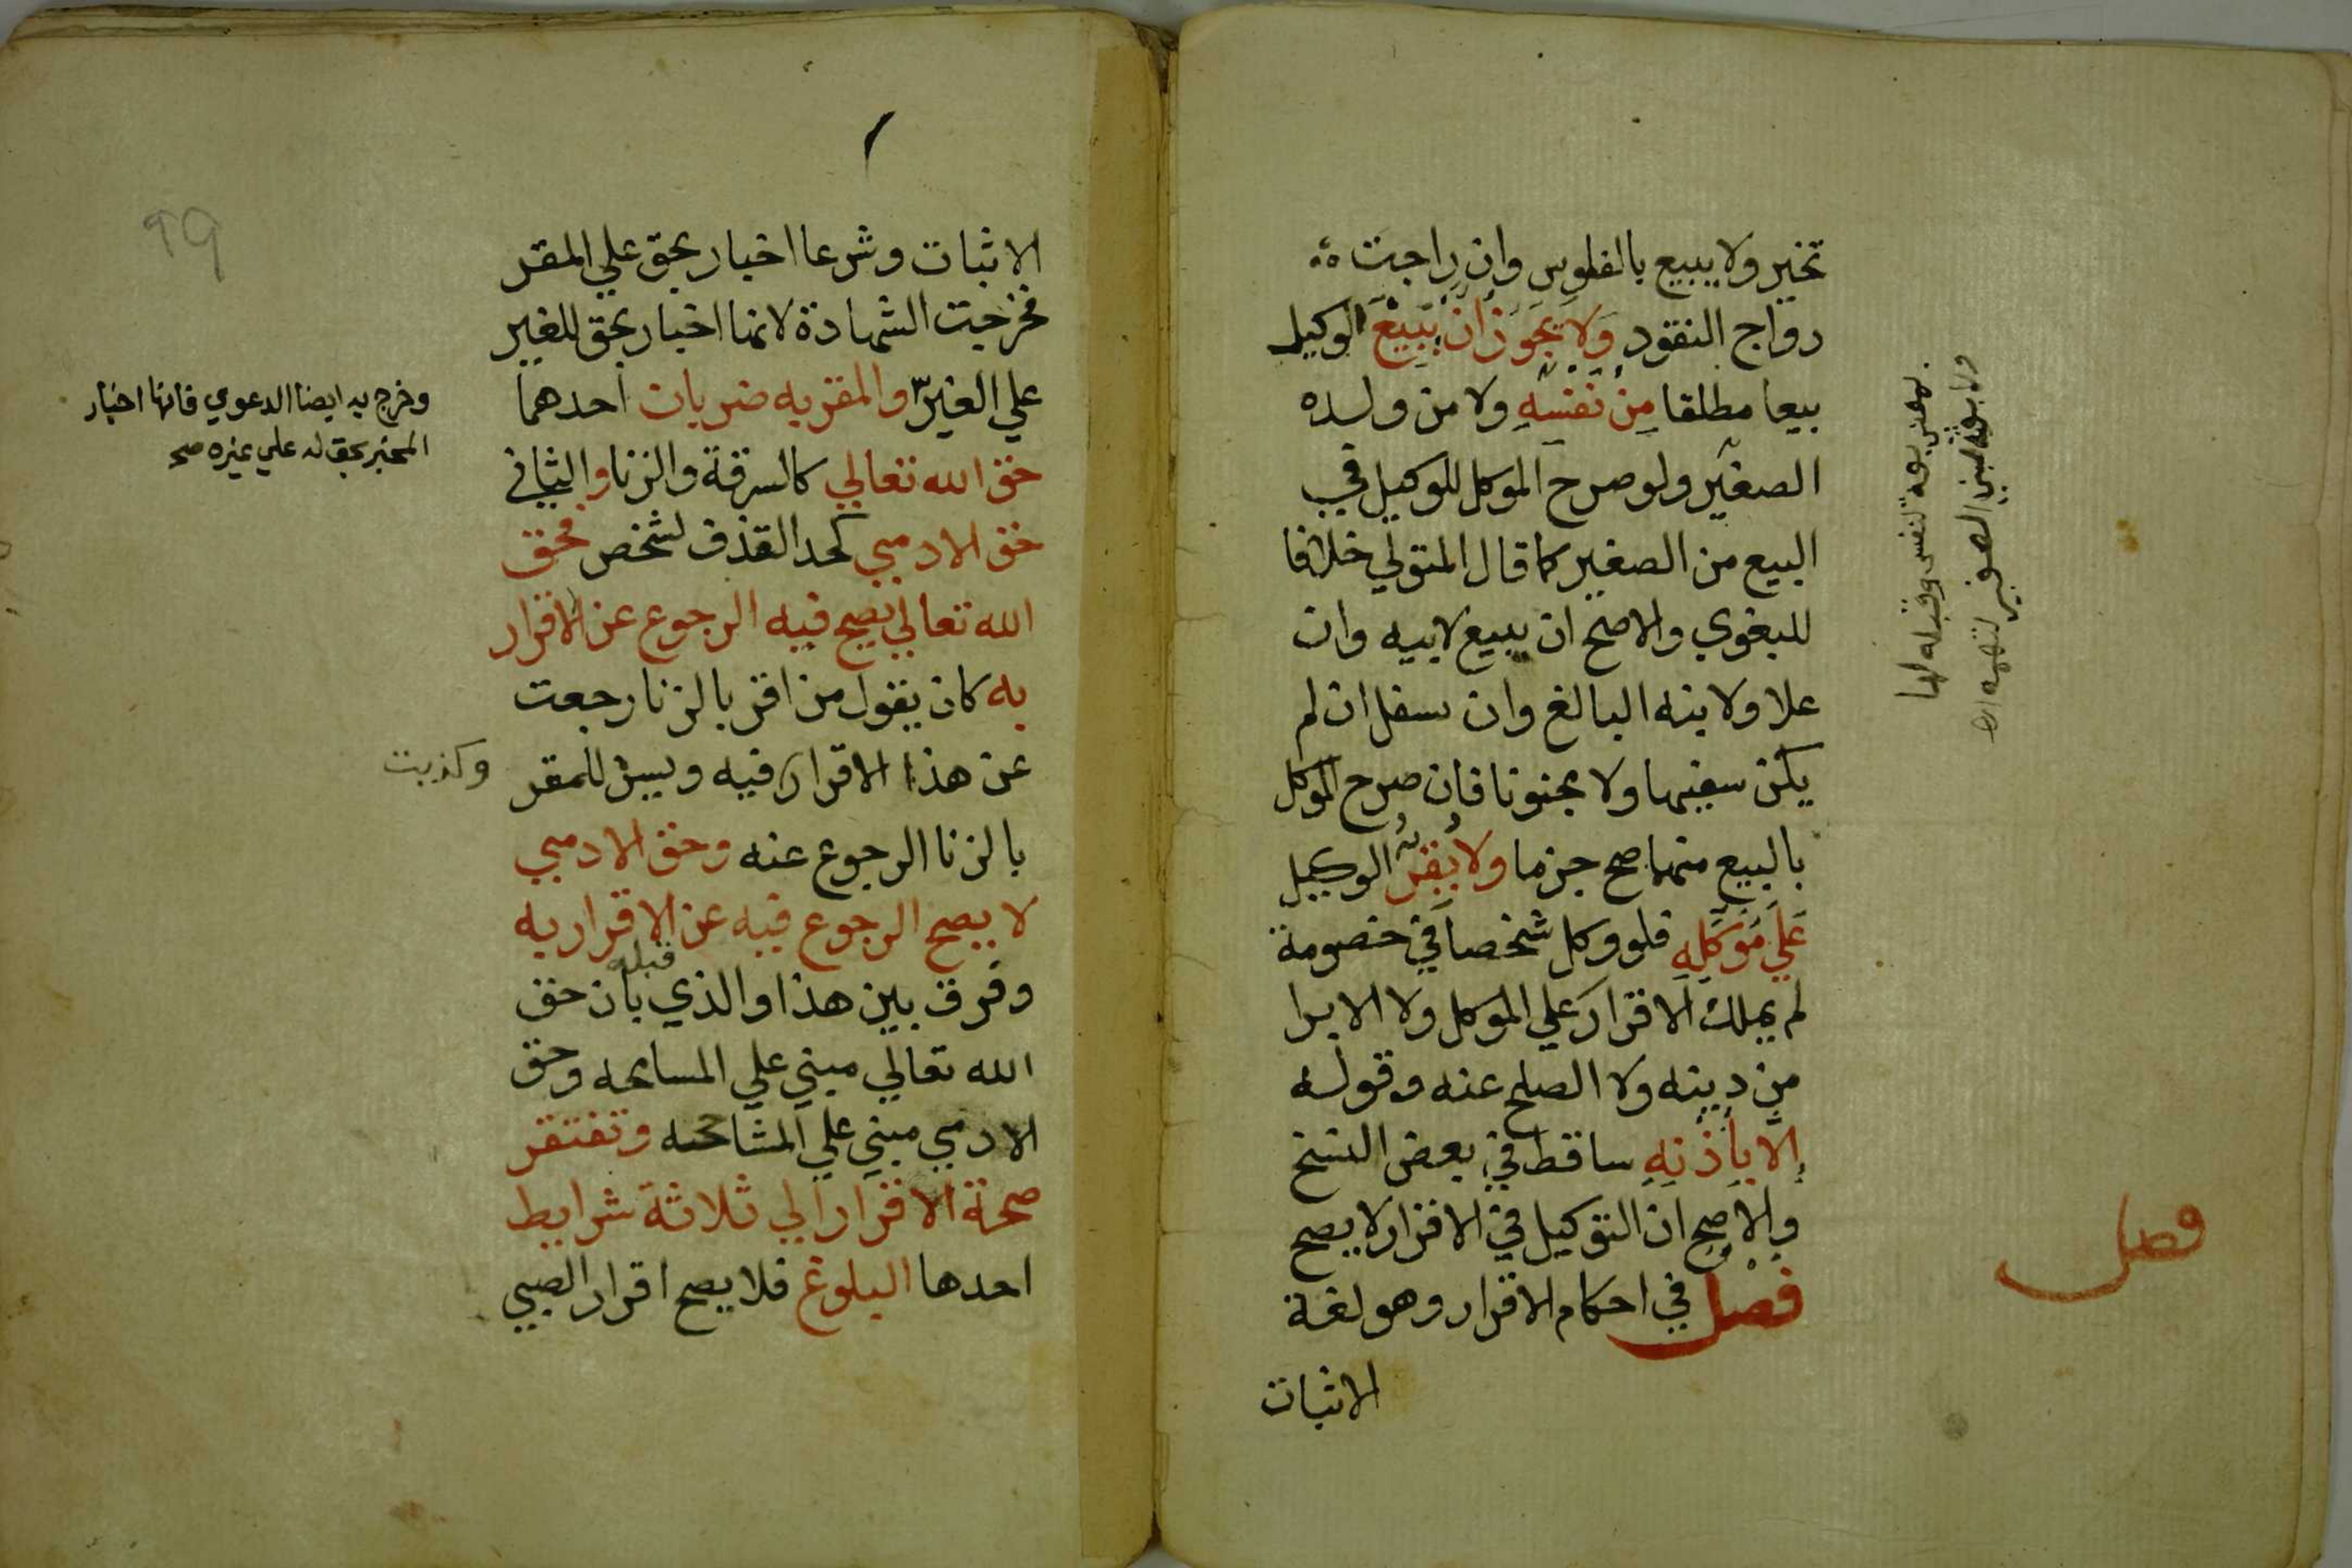 تخير ولا يبيع بالفلوس وان راجت
رواج النقود وَلَا يَجُوزُ انْ يَبِيْعَ الوكيل
بيعا مطلقا مِنْ نَفْسِهِ ولا من ولده
الصغير ولو صرح الموكل للوكيل في
البيع من الصغير كما قال المتولي خلافا
للبغوي والاصح ان يبيع لابيه وان
علا ولابنه البالغ وان سفل ان لم
يكن سفيها ولا مجنونا فان صرح الموكل
بالبيع منهما صح جزما ولا يُقِرُّ الوكيل
عَلَي مُوَكِّلِهِ فلو وكل شخصا في خصومة
لم يملك الاقرار علي الموكل ولا الابرا
من دينه ولا الصلح عنه وقوله
إلا بِأِذْنِهِ ساقط في بعض النسخ
والاصح ان التوكيل في الاقرار لا يصح
فصل في احكام الاقرار وهو لغة
الاثبات
فصل
99
الاثبات وشرعا اخبار بحق علي المقر
فخرجت الشهادة لانها اخبار بحق للغير
علي الغير والمقر به ضربان احدهما
وخرج به ايضا الدعوي فانها اخبار
المخبر بحق له علي غيره صح
حق الله تعالي كالسرقة والزنا والثاني
حق الادمي كحد القذف لشخص فحق
الله تعالي يصح فيه الرجوع عن الاقرار
به كان يقول من اقر بالزنا رجعت
عن هذا الاقرار فيه ويسن للمقر
وكذبت
بالزنا الرجوع عنه وحق الادمي
لا يصح الرجوع فيه عن الاقرار به
وفرق بين هذا والذي قبله بان حق
الله تعالي مبني علي المسامحه وحق
الادمي مبني علي المشاححه وتفتقر
صحة الاقرار الي ثلاثة شرايط
احدها البلوغ فلا يصح اقرار الصبي